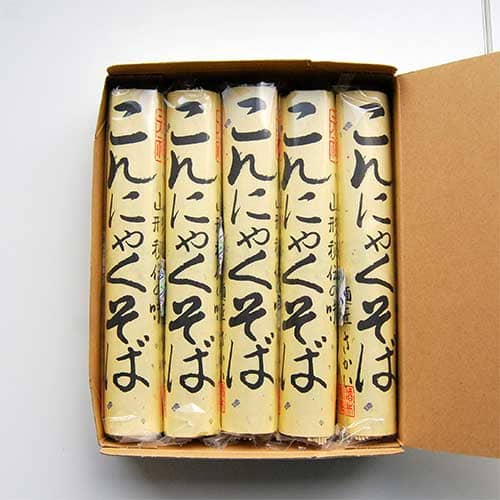 こんにゃくそば
こんにゃくそば
山形秘伝の味
こんにゃくそば
こんにゃくそば
山形秘伝の味
こんにゃくそば
さかい